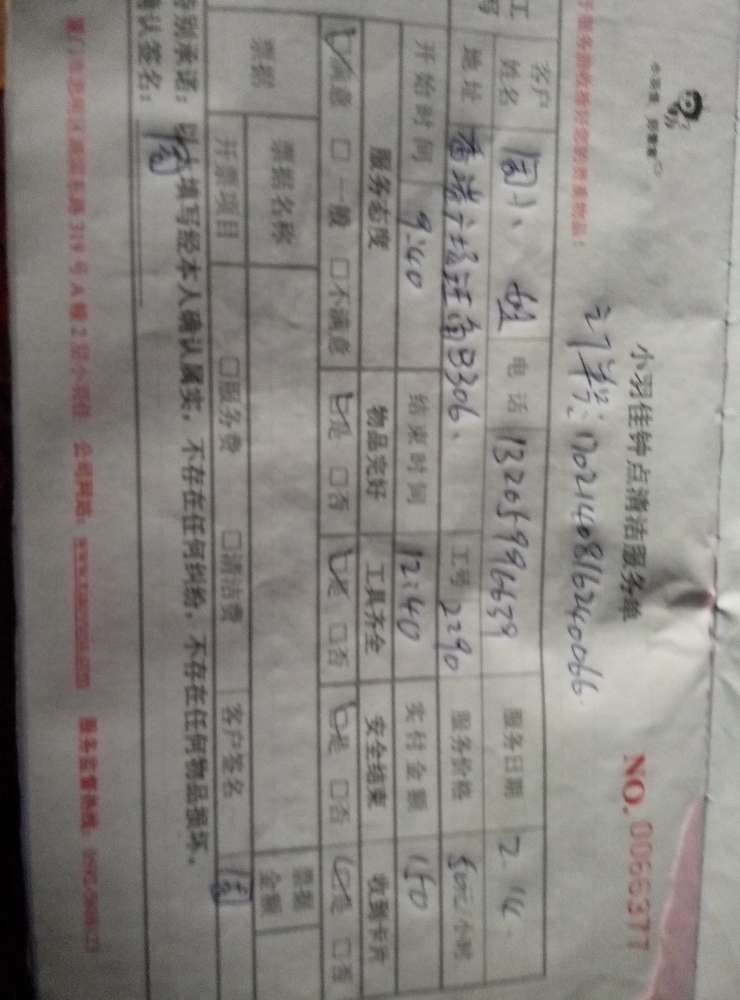 小羽佳 好管家
小羽佳钟点清洁服务单
NO. 0066377
订单号: 1702140816240066.
客户姓名 周小姐 电话 13205996639 服务日期 2.14.
地址 香港广场旺角B306、 工号 2290 服务价格 50元/小时
开始时间 9:40 结束时间 12:40 实付金额 150
服务态度 物品完好 工具齐全 安全结束 收到卡片
满意 □一般 □不满意 是 □否 是 □否 是 □否 是 □否
票据 票据名称 票据金额
开票项目 □服务费 □清洁费 客户签名 周
特别承诺:以上填写经本人确认属实,不存在任何纠纷,不存在任何物品损坏。
确认签名: 周
319号A幢2层小羽佳 公司网站:
服务监督热线: